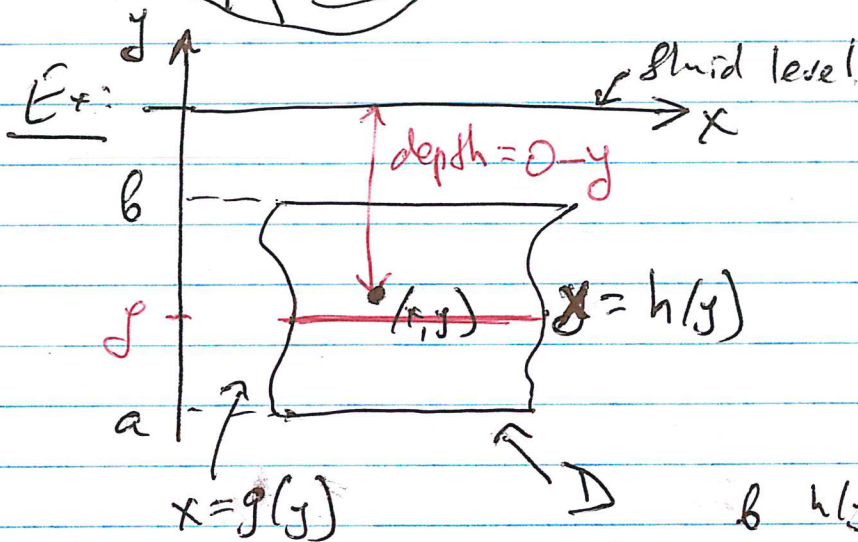 y
fluid level
Ex:
x
depth = 0-y
b
(x,y)
x = h(y)
y
a
x = g(y)
D
b h(